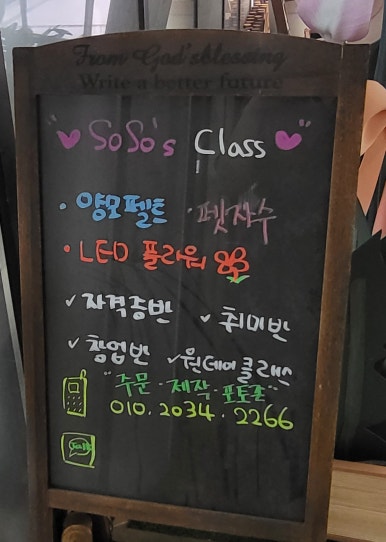 From God's blessing
Write a better future
"♥ SoSo's Class ♥"
· 양모펠트 · 펫자수
· LED 플라워
✓ 자격증반 ✓ 취미반
✓ 창업반 ✓ 원데이클래스
"주문·제작·포토존"
010.2034.2266